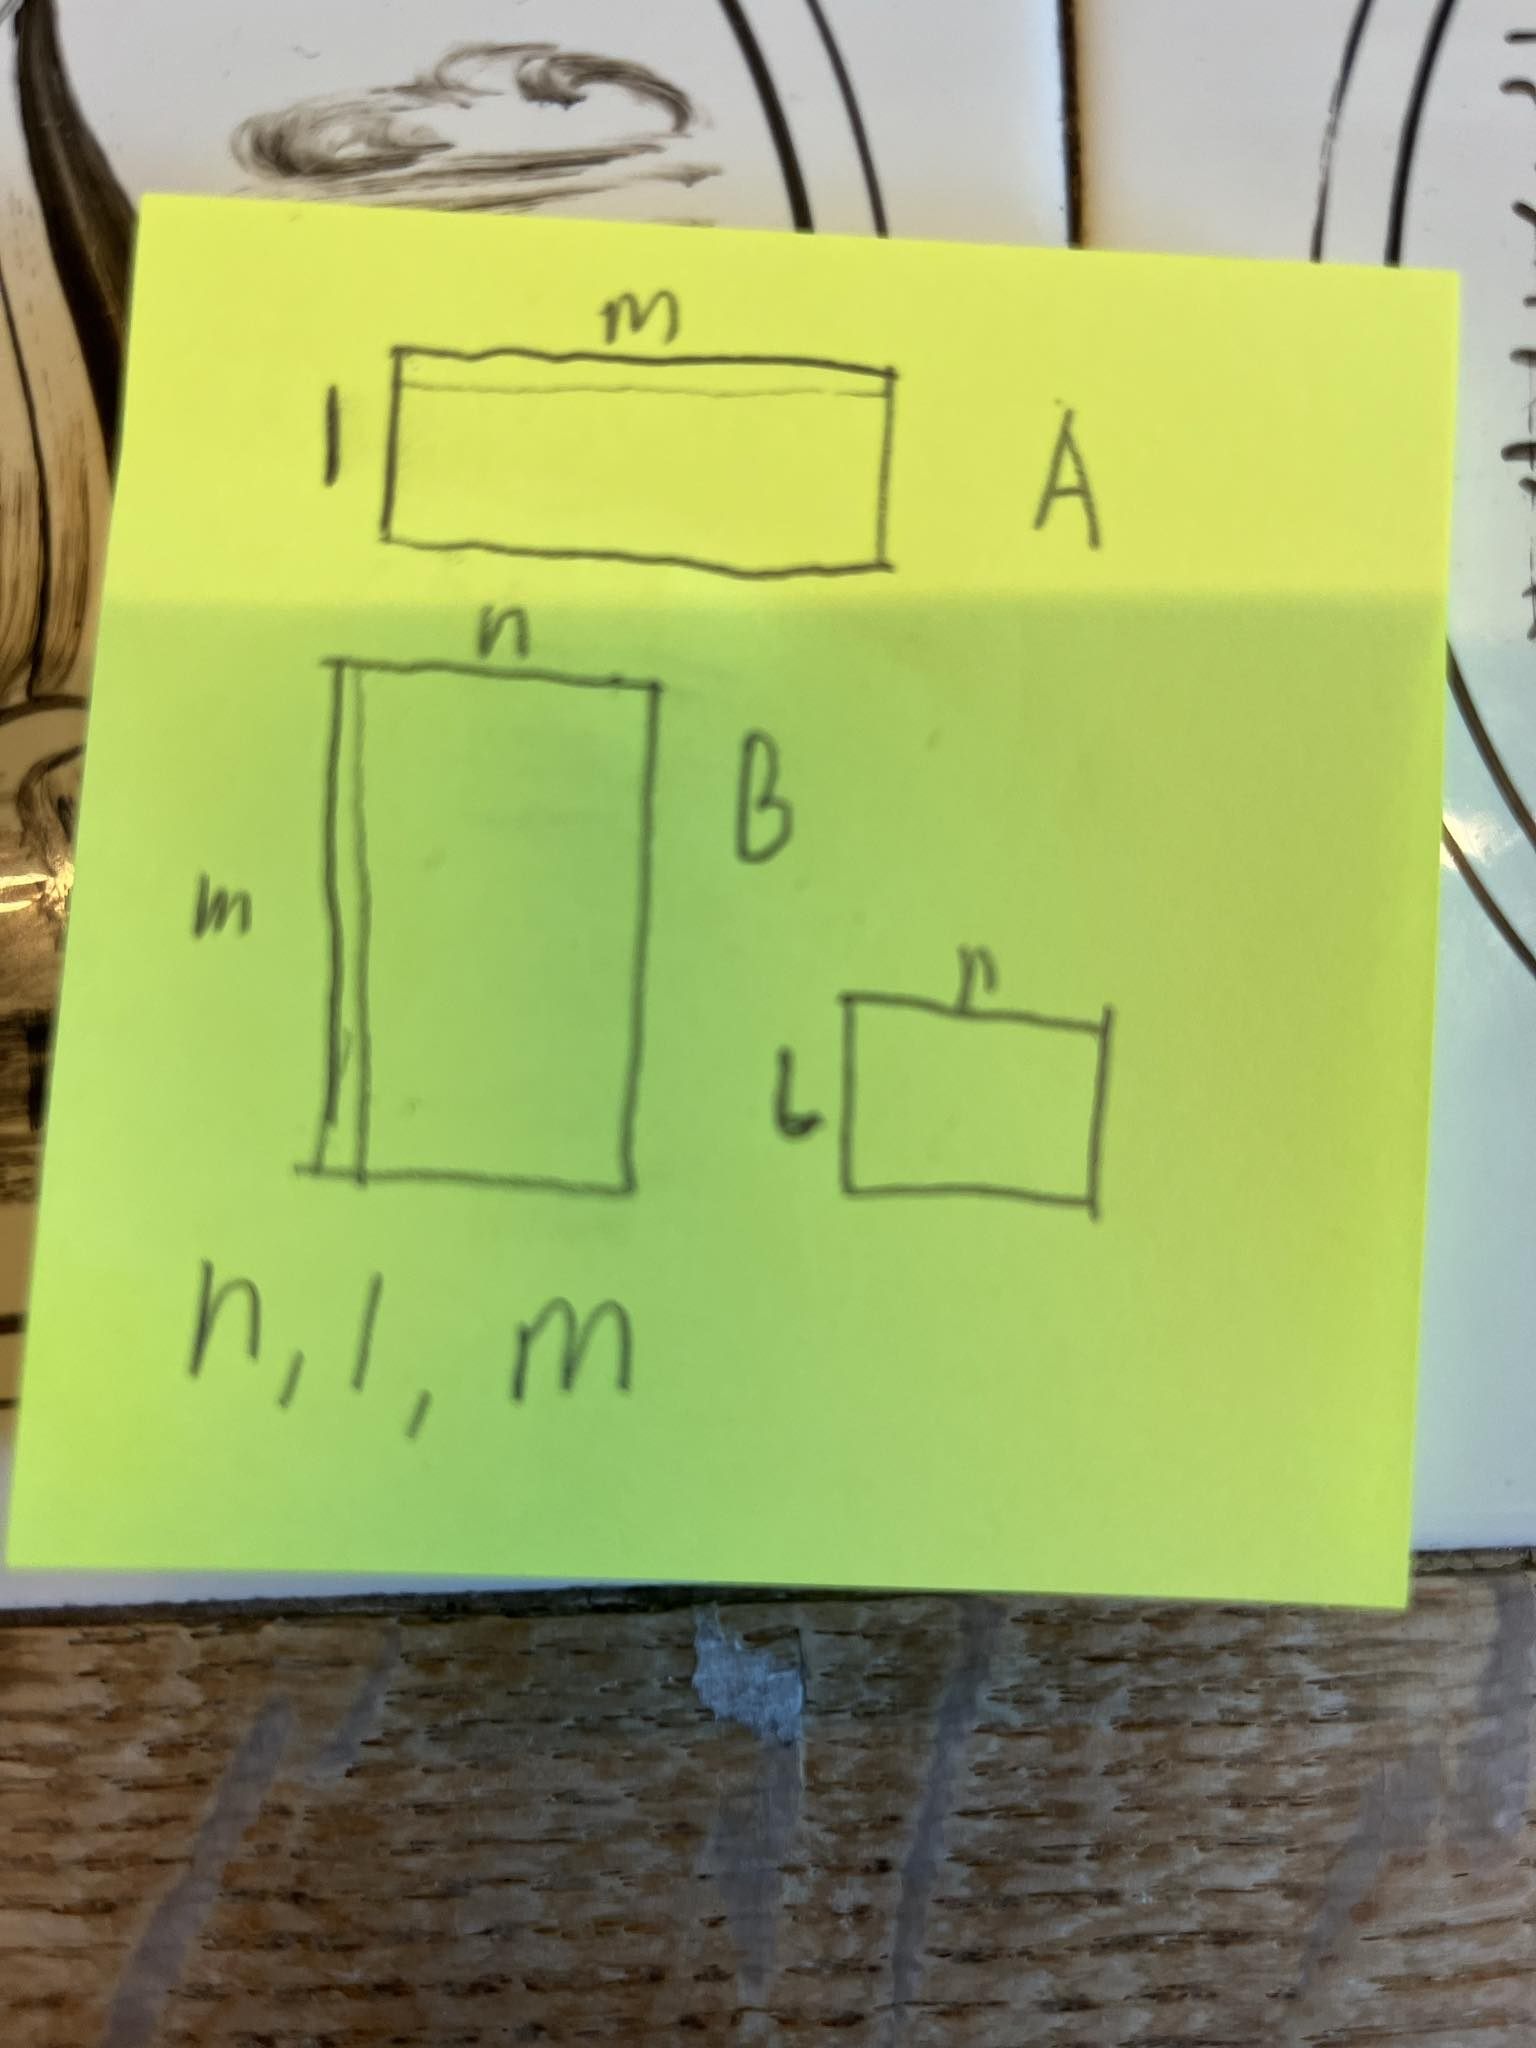 m
l
A
n
B
m
n
L
n, l, m